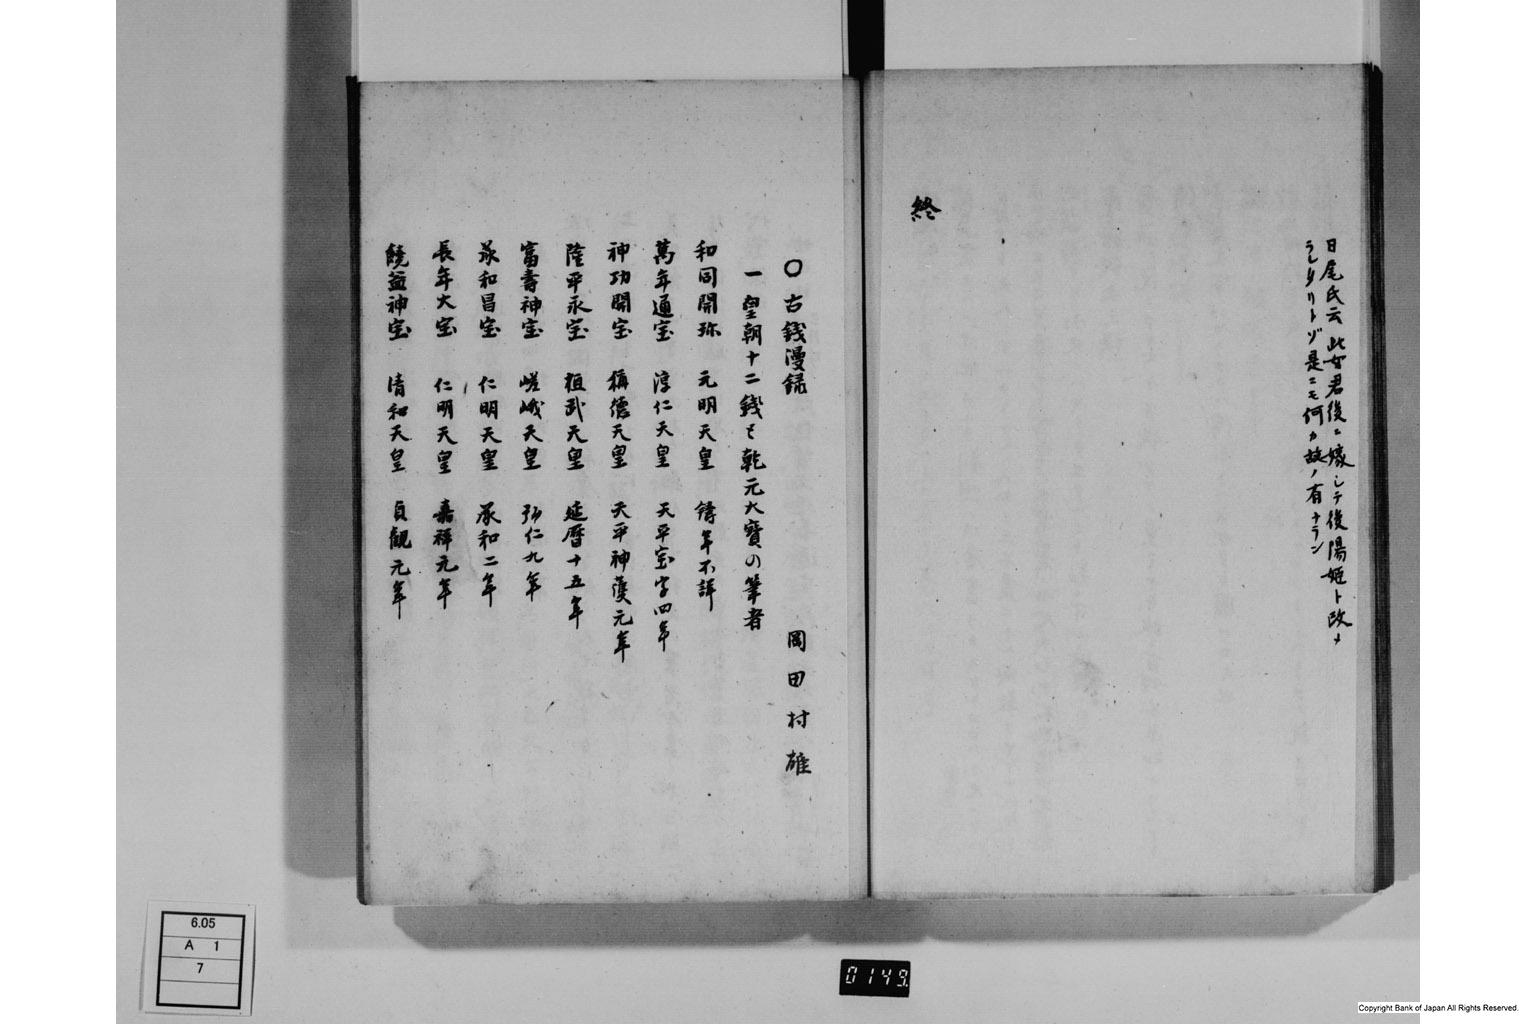 日尾氏云此女君後ニ嫁シテ後陽姫ト改メ
ラレタリトゾ是ニモ何カ故ノ有ナラン
終
〇古銭漫録 岡田村雄
一皇朝十二銭と乾元大寳の筆者
和同開珎 元明天皇 鋳年不詳
萬年通宝 淳仁天皇 天平宝字四年
神功開宝 稱德天皇 天平神護元年
隆平永宝 桓武天皇 延暦十五年
富壽神宝 嵯峨天皇 弘仁九年
承和昌宝 仁明天皇 承和二年
長年大宝 仁明天皇 嘉祥元年
饒益神宝 清和天皇 貞観元年
6.05
A 1
7
0149
Copyright Bank of Japan All Rights Reserved.